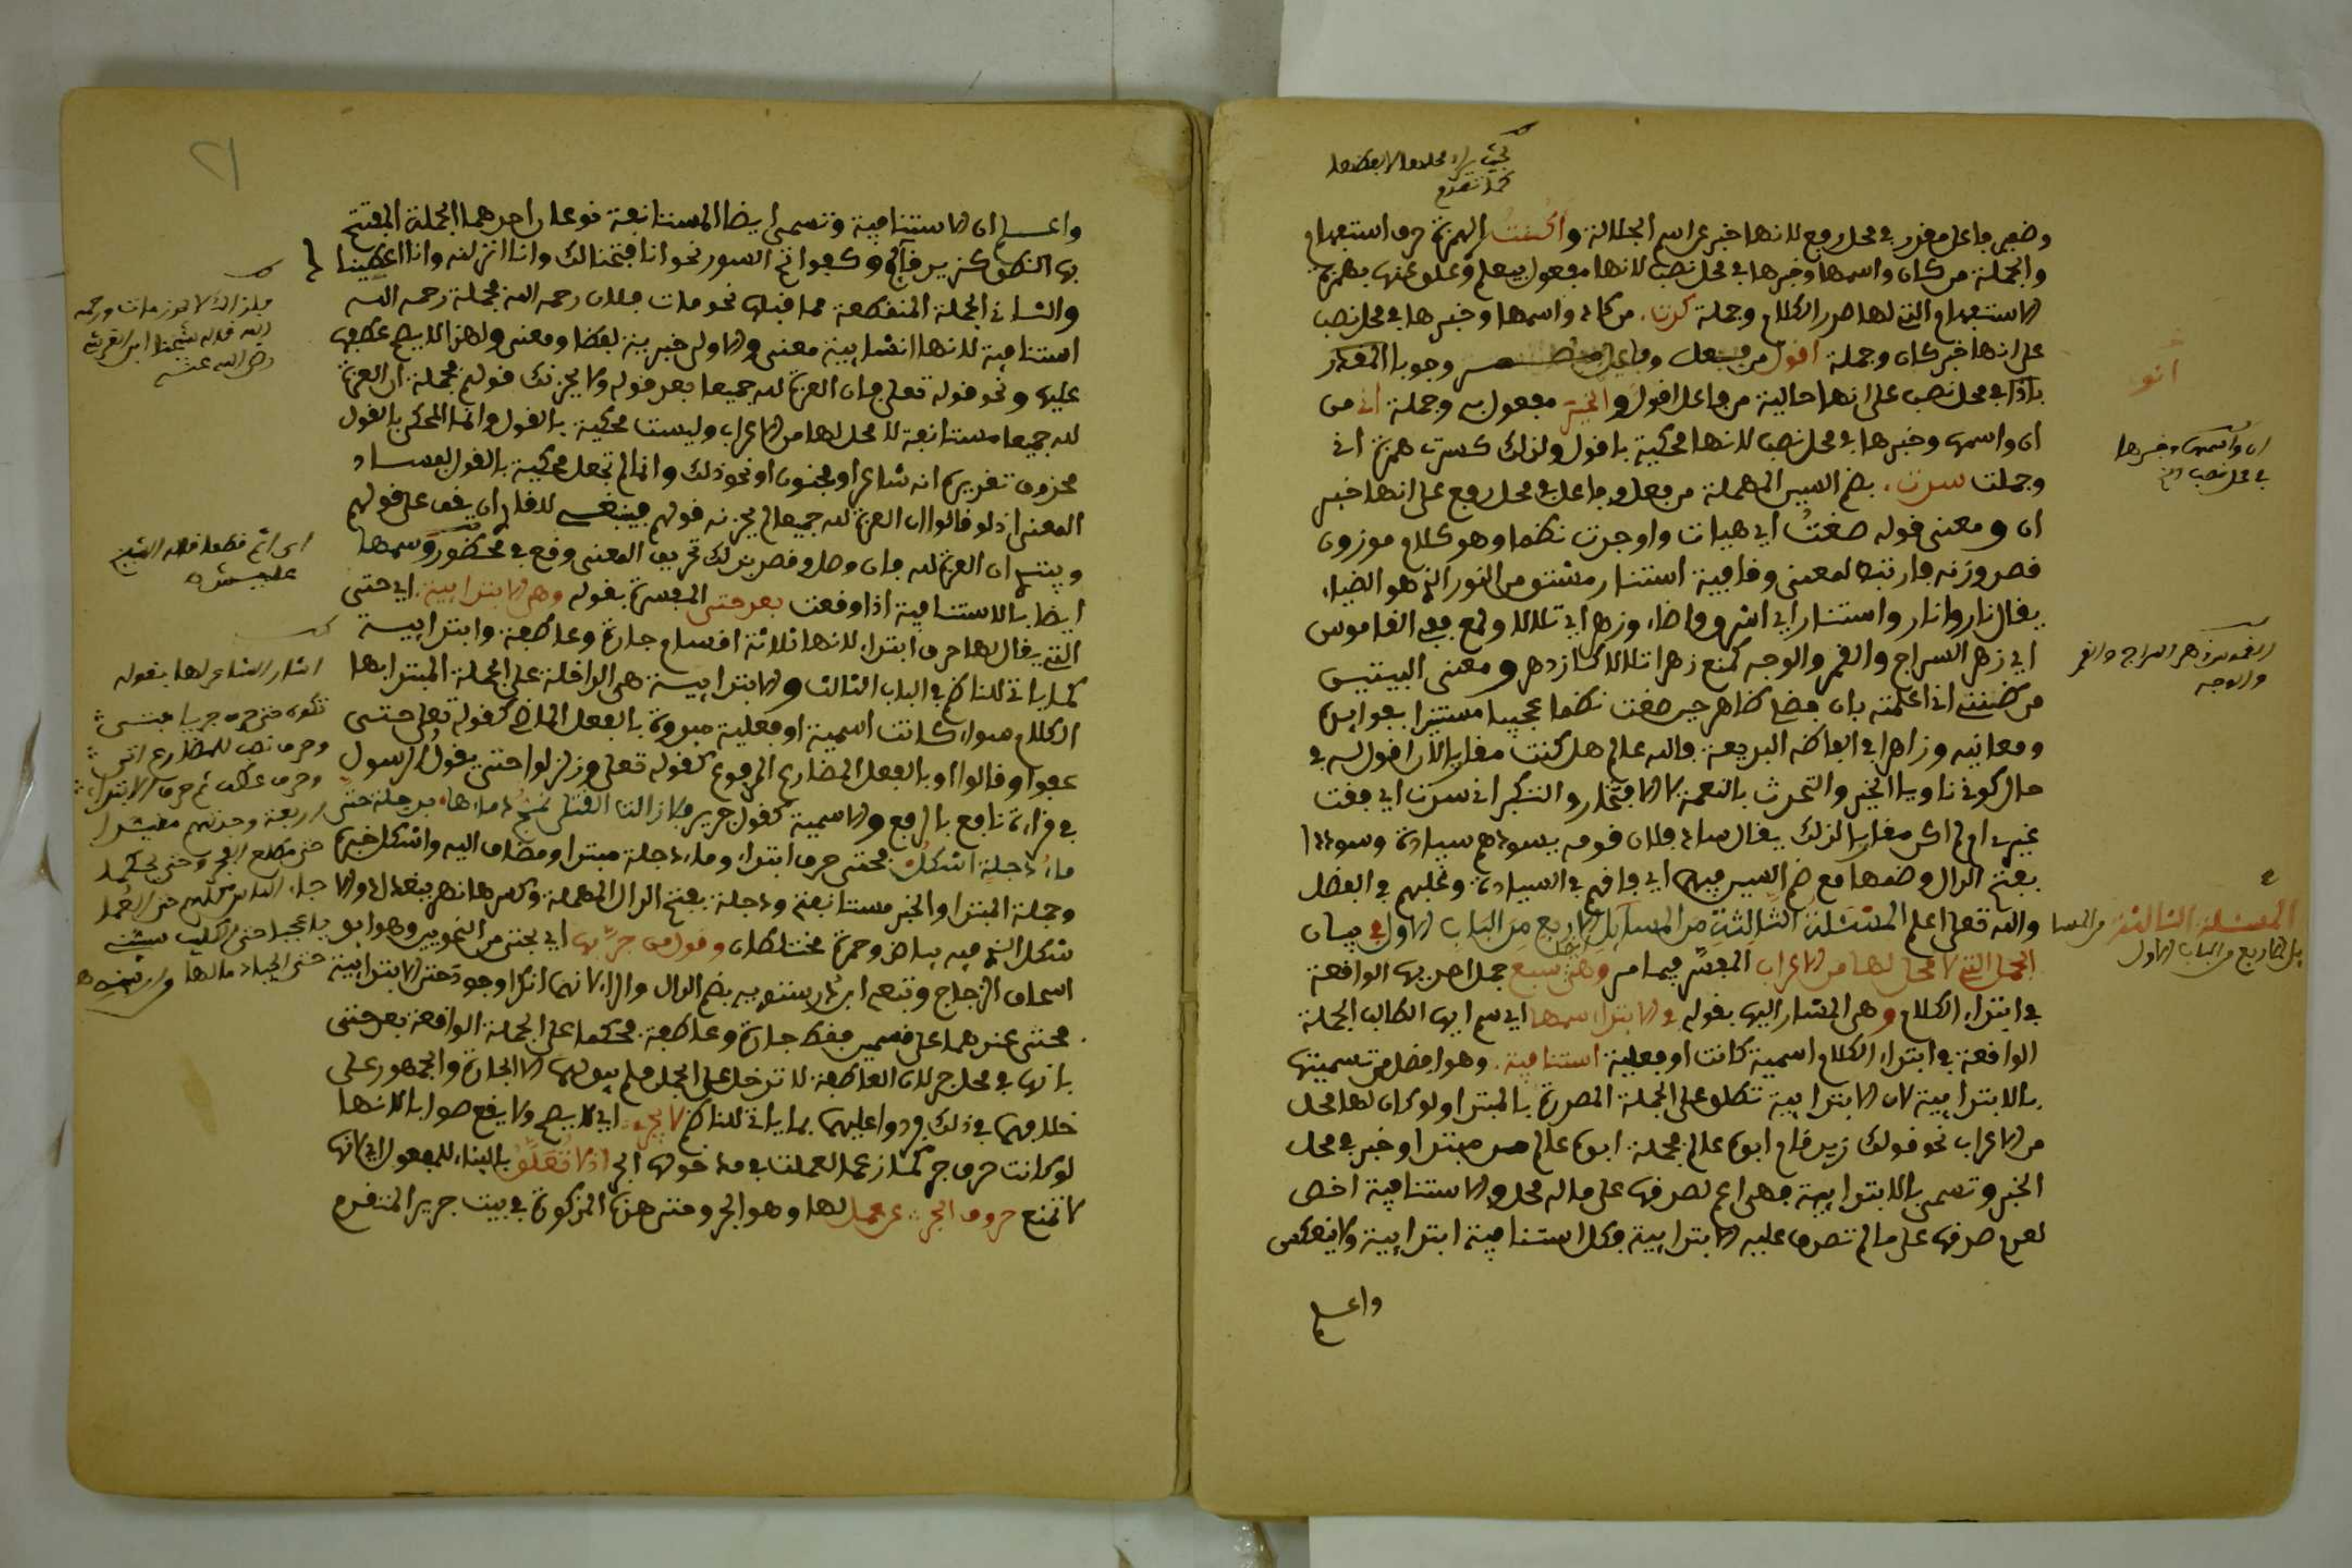 وضمير فاعل مقدر في محل رفع لانها خبر عن اسم الجلالة وأكنت الهمزة حرف استفهام
والجملة من كان واسمها وخبرها في محل نصب لانها مفعول بيعلم وعلق عنها بهمزة
الاستفهام التي لها صدر الكلام وجملة كنت من كان واسمها وخبرها في محل نصب
على انها خبر كان وجملة اقول من فعل وفاعل وجوبا المقدر
بأنا في محل نصب على انها حالية من فاعل اقول والخير مفعول به وجملة اني من
ان واسمها وخبرها في محل نصب لانها محكية باقول ولذلك كسرت همزة اني
وجملت سدت بضم السين المهملة من فعل وفاعل في محل رفع على انها خبر
ان ومعنى قوله صغت اي هيات واوجدت نظما وهو كلام موزون
قصد وزنه فارتبط لمعنى وقافية استنار مشتق من النور الذي هو الضياء
يقال نار وانار واستنار اي اشرق وضاء وزهر اي تلالا ولمع ففي القاموس
اي زهر السراج والقمر والوجه كمنع زهرا تلالا كازدهر ومعنى البيتين
من ظننني اني اعلمته بان فضلي ظاهر حين صغت نظما عجيبا مستنيرا بفوايده
ومعانيه وزاهرا في الفاظه البديعة فالله عالم هل كنت مقاربا لان اقول له في
حال كوني ناويا الخير والتحدث بالنعمة لا الافتخار والتكبر اني سدت اي فقت
غيري او لم اكن مقاربا لذلك يقال ساد فلان قومه يسودهم سيادة وسوددا
بفتح الدال وضمها مع ضم السين فيهما اي فاقهم في السيادة وغلبهم في الفضل
والله تعلى اعلم المسئلة الثالثة من المسايل الاربع من الباب الاول في بيان
الجمل التي لا محل لها من الاعراب المفسر فيما مر وهي سبع جمل احديها الواقعة
في ابتداء الكلام وهي المشار اليها بقوله في الابتدا سمها اي سم ايها الطالب الجملة
الواقعة في ابتداء الكلام اسمية كانت او فعلية استنافية وهو افضل من تسميتها
بالابتدايية لان الابتدايية تطلق على الجملة المصدرة بالمبتدا ولو كان لها محل
من الاعراب نحو قولك زيد قام ابوه عالم فجملة ابوه عالم من مبتدا وخبر في محل
الخبر وتسمى بالابتدايية فهي اعم لصدقها على ماله محل والاستنافية اخص
لعدم صدقها على ما لم تصدق عليه الابتدايية فكل استنافية ابتدايية ولا ينعكس
واعلم
انو
ان واسمها وخبرها
في محل نصب
زهر السراج والقمر
والوجه
المسئلة الثالثة من المسا
يل الاربع من الباب الاول
٢١
واعلم ان الاستنافية وتسمى ايضا المستانفة نوعان احدهما الجملة المفتتح
بها النطق كزيد قايم وكفواتح السور نحو انا فتحنا لك وانا انزلنه وانا اعطينا
والثاني الجملة المنقطعة مما قبلها نحو مات فلان رحمه الله فجملة رحمه الله
استنافية لانها انشايية معنى والاولى خبرية لفظا ومعنى ولهذا لا يصح عطفها
عليها ونحو قوله تعلى فان العزة لله جميعا بعد قوله ولا يحزنك قولهم فجملة ان العزة
لله جميعا مستانفة لا محل لها من الاعراب وليست محكية بالقول وانما المحكي بالقول
محذوف تقديره انه شاعر او مجنون او نحو ذلك وانما لم تجعل محكية بالقول لفساد
المعنى اذ لو قالوا ان العزة لله جميعا لم يحزنه قولهم فينبغي للقاري ان يقف على قولهم
ويبتدي ان العزة لله فان وصل وقصد بذلك تحريف المعنى وقع في محظور وسمها
ايضا بالاستنافية اذا وقعت بعد حتى المفسرة بقوله وهي الابتدايية اي حتى
التي يقال لها حرف ابتداء لانها ثلاثة اقسام جارة وعاطفة وابتدايية
كما ياتي للناظم في الباب الثالث والابتدايية هي الداخلة على الجملة المبتدا بها
الكلام سواء كانت اسمية او فعلية مبدوة بالفعل الماضي كقوله تعلى حتى
عفوا وقالوا او بالفعل المضارع المرفوع كقوله تعلى وزلزلوا حتى يقول الرسول
في قراءة نافع بالرفع والاسمية كقول جرير فما زالت القتلى تمج دماءها بدجلة حتى
ماء دجلة اشكل فحتى حرف ابتداء وماء دجلة مبتدا ومضاف اليه واشكل خبره
وجملة المبتدا والخبر مستانفة ودجلة بفتح الدال المهملة وكسرها نهر ببغداد والا
شكل الذي فيه بياض وحمرة مختلطان وقول من جر بها اي بحتى من النحويين وهو ابو
اسحاق الزجاج وتبعه ابن درستويه بضم الدال والراء لانهما انكرا وجود حتى الابتدايية
فحتى عندهما على قسمين فقط جارة وعاطفة فحكما على الجملة الواقعة بعد حتى
بانها في محل جر لان العاطفة لا تدخل على الجمل فلم يبق لها الا الجارة والجمهور على
خلافهما في ذلك وردوا عليهما بما ياتي للناظم لا يجي اي لا يصح ولا يقع صوابا لانها
لو كانت حرف جر كما زعما لعملت في مدخولها الجر اذ لا تعلق بالبناء للمفعول اي لانها
لا تمنع حروف الجر عن عمل لها وهو الجر وحتى هذه المذكورة في بيت جرير المتقدم
اشار الشاعر لها بقوله
تكون حتى حرف جر يا فتى
وحرف نصب للمضارع اتى
وحرف عطف ثم حرف الابتداء